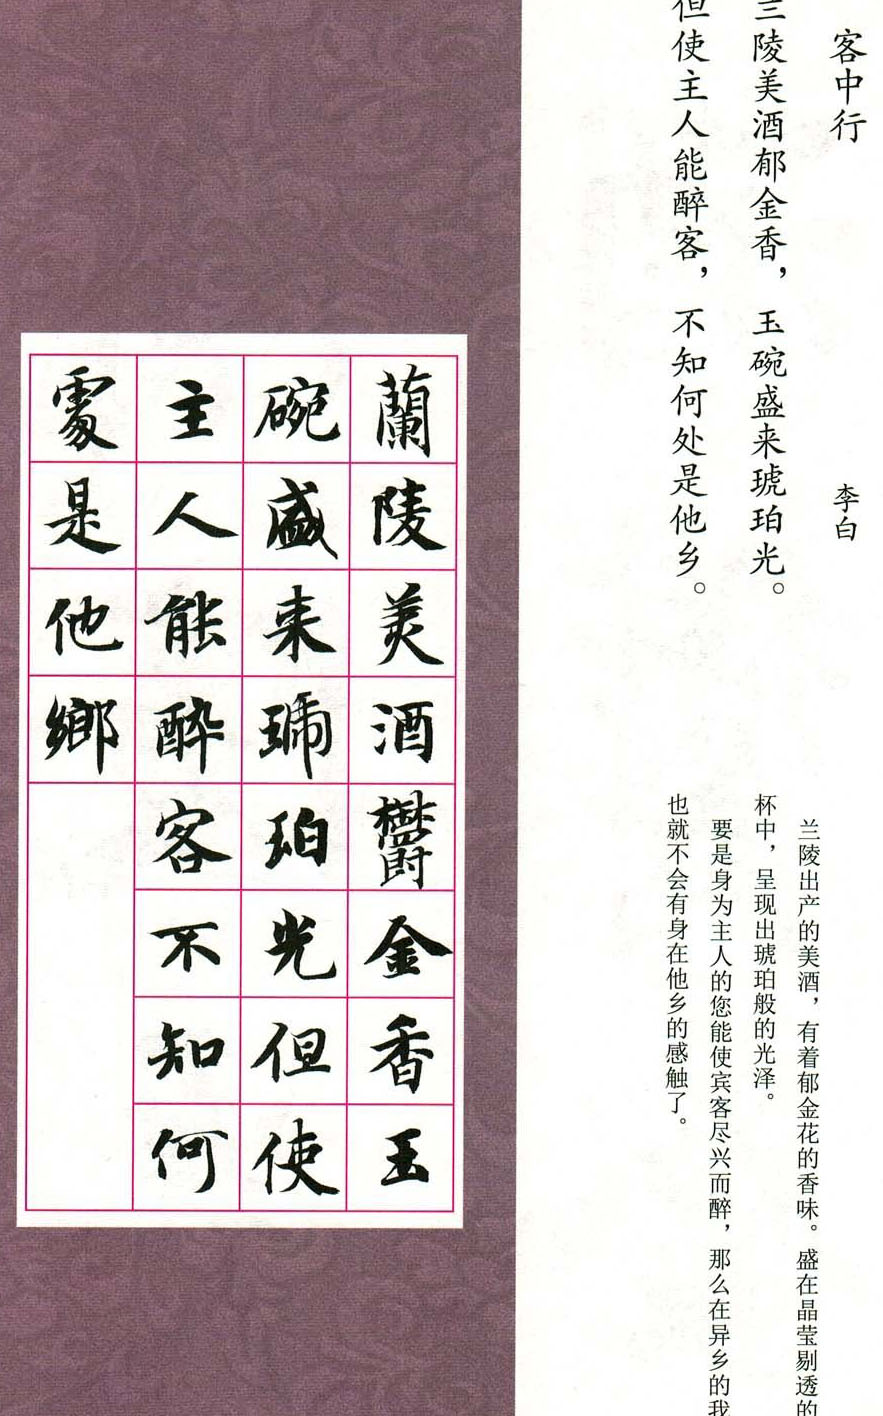 客中行
李白
兰陵美酒郁金香，玉碗盛来琥珀光。
但使主人能醉客，不知何处是他乡。
兰陵出产的美酒，有着郁金花的香味。盛在晶莹剔透的
杯中，呈现出琥珀般的光泽。
要是身为主人的您能使宾客尽兴而醉，那么在异乡的我
也就不会有身在他乡的感触了。
蘭陵美酒鬱金香玉
碗盛来琥珀光但使
主人能醉客不知何
處是他鄉